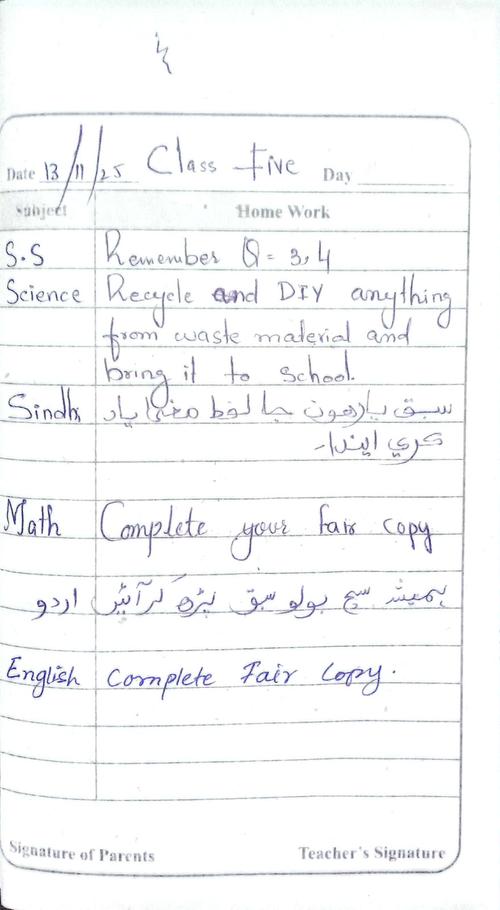 Date 13/11/25 Class Five Day
Subject Home Work
S.S Remember Q = 3,4
Science Recycle and DIY anything
from waste material and
bring it to school.
Sindhi سبق يارهون جا لفظ معنيٰ ياد
ڪري ايندا۔
Math Complete your fair copy
اردو ہمیشہ سچ بولو سبق پڑھ کر آئیں
English Complete Fair Copy.
Signature of Parents Teacher's Signature